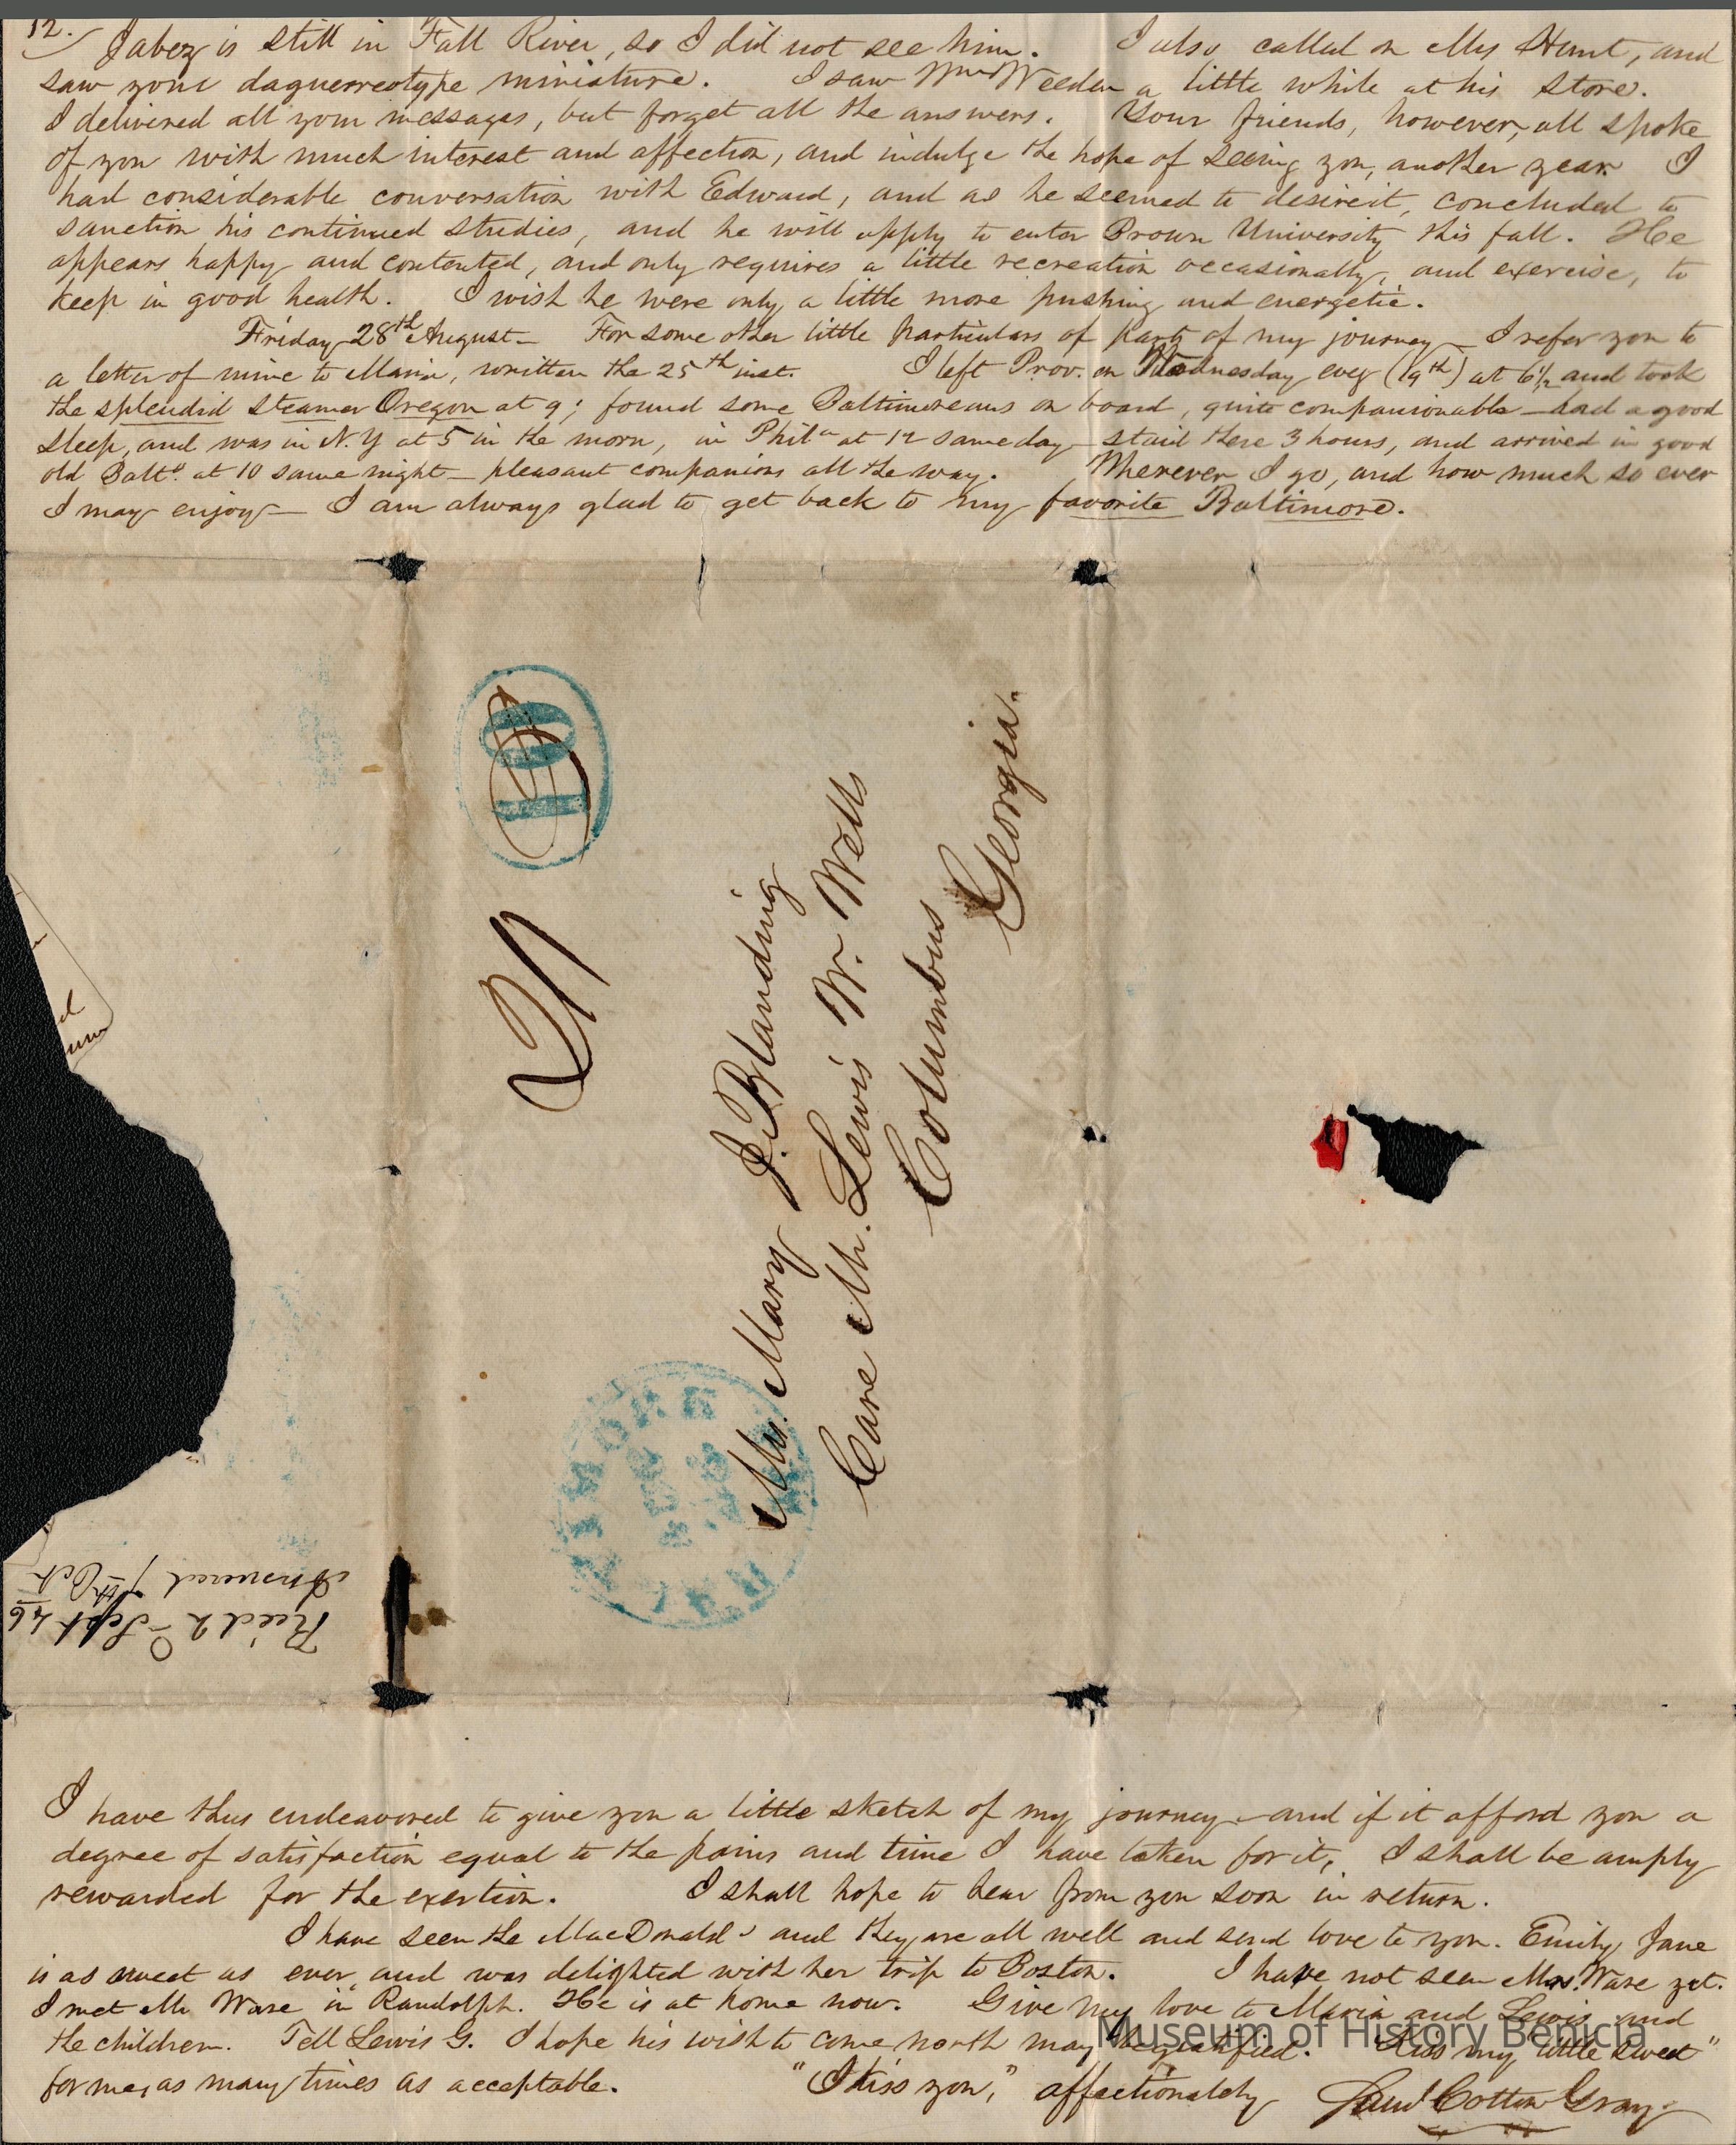 12.
Jabez is still in Fall River, so I did not see him. I also called on Mrs Hunt, and
saw your daguerreotype miniature. I saw Wm Weeden a little while at his store.
I delivered all your messages, but forget all the answers. Your friends, however, all spoke
of you with much interest and affection, and indulge the hope of seeing you, another year. I
had considerable conversation with Edward, and as he seemed to desire it, concluded to
sanction his continued studies, and he will apply to enter Brown University this fall. He
appears happy and contented, and only requires a little recreation occasionally, and exercise, to
keep in good health. I wish he were only a little more pushing and energetic.
Friday 28th August— For some other little particulars of part of my journey— I refer you to
a letter of mine to Maria, written the 25th inst. I left Prov. on Wednesday eveg (19th) at 6½ and took
the splendid steamer Oregon at 9; found some Baltimoreans on board, quite companionable—had a good
sleep, and was in N.Y at 5 in the morn, in Phila at 12 same day— staid there 3 hours, and arrived in good
old Balto. at 10 same night— pleasant companions all the way. Wherever I go, and how much so ever
I may enjoy— I am always glad to get back to my favorite Baltimore.
10
Mrs. Mary J. Blanding
Care Mr. Lewis W. Wells
Columbus
Georgia.
BALTIMORE
Rec'd 2d Sept 46
Answered 7th Oct
I have thus endeavored to give you a little sketch of my journey—and if it afford you a
degree of satisfaction equal to the pains and time I have taken for it, I shall be amply
rewarded for the exertion. I shall hope to hear from you soon in return.
I have seen the MacDonald's and they are all well and send love to you. Emily Jane
is as sweet as ever, and was delighted with her trip to Boston. I have not seen Mrs. Ware yet.
I met Mr Ware in Randolph. He is at home now. Give my love to Maria and Lewis and
the children. Tell Lewis G. I hope his wish to come north may be gratified. Kiss my little sweet"
for me, as many times as acceptable. "I kiss you," affectionately Saml Cotton Gray
Museum of History Benicia